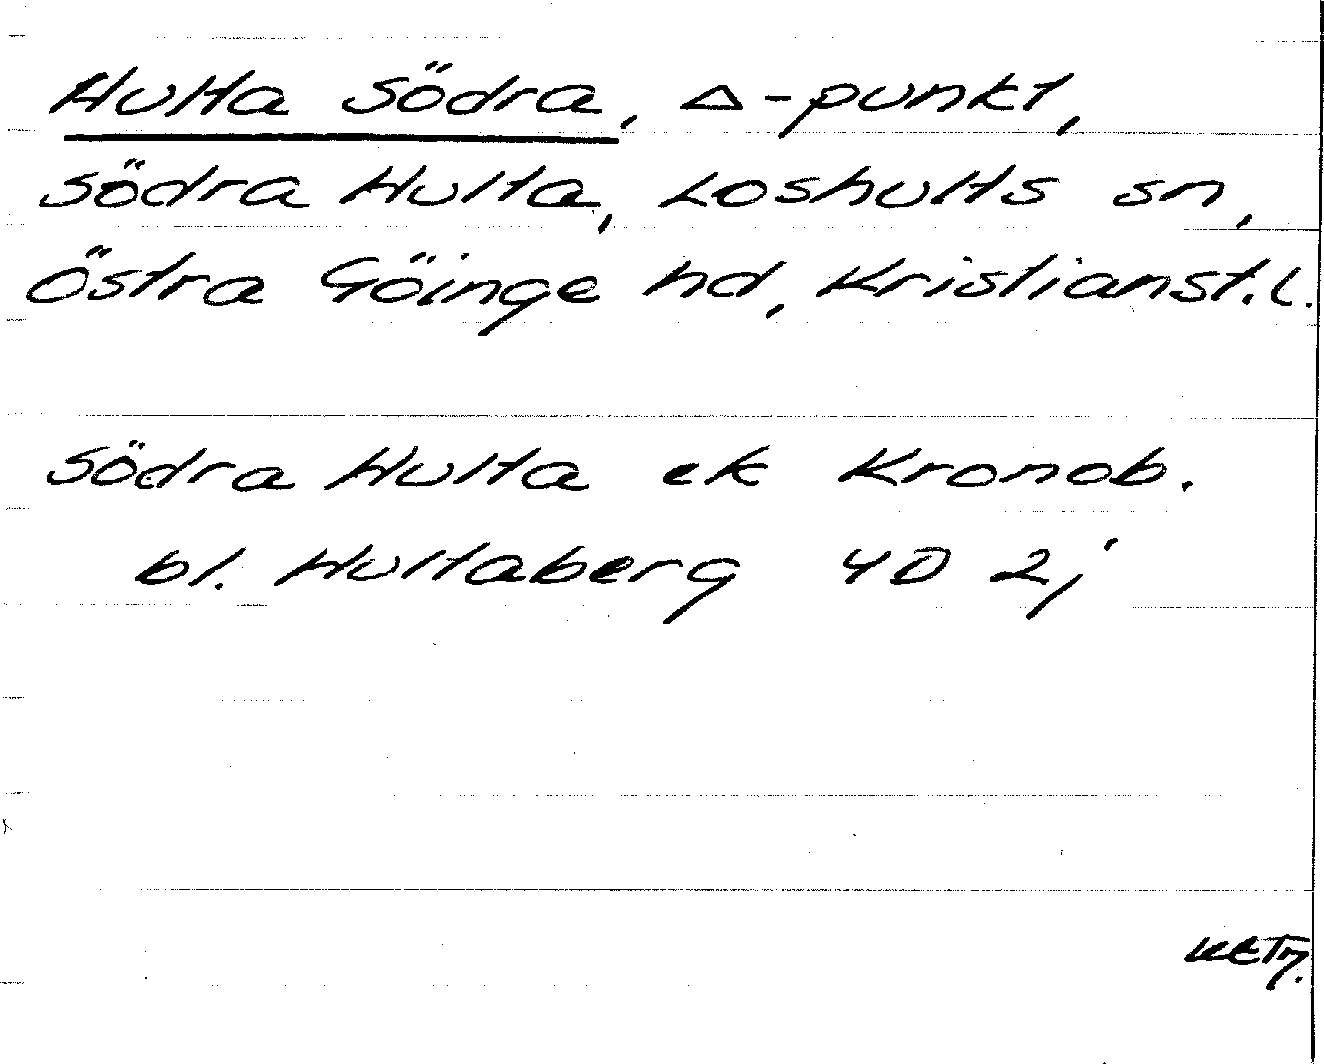 Hulta Södra, △-punkt,
Södra Hulta, Loshults sn,
Östra Göinge hd, Kristianst.l.
Södra Hulta ek Kronob.
bl. Hultaberg 4D 2j